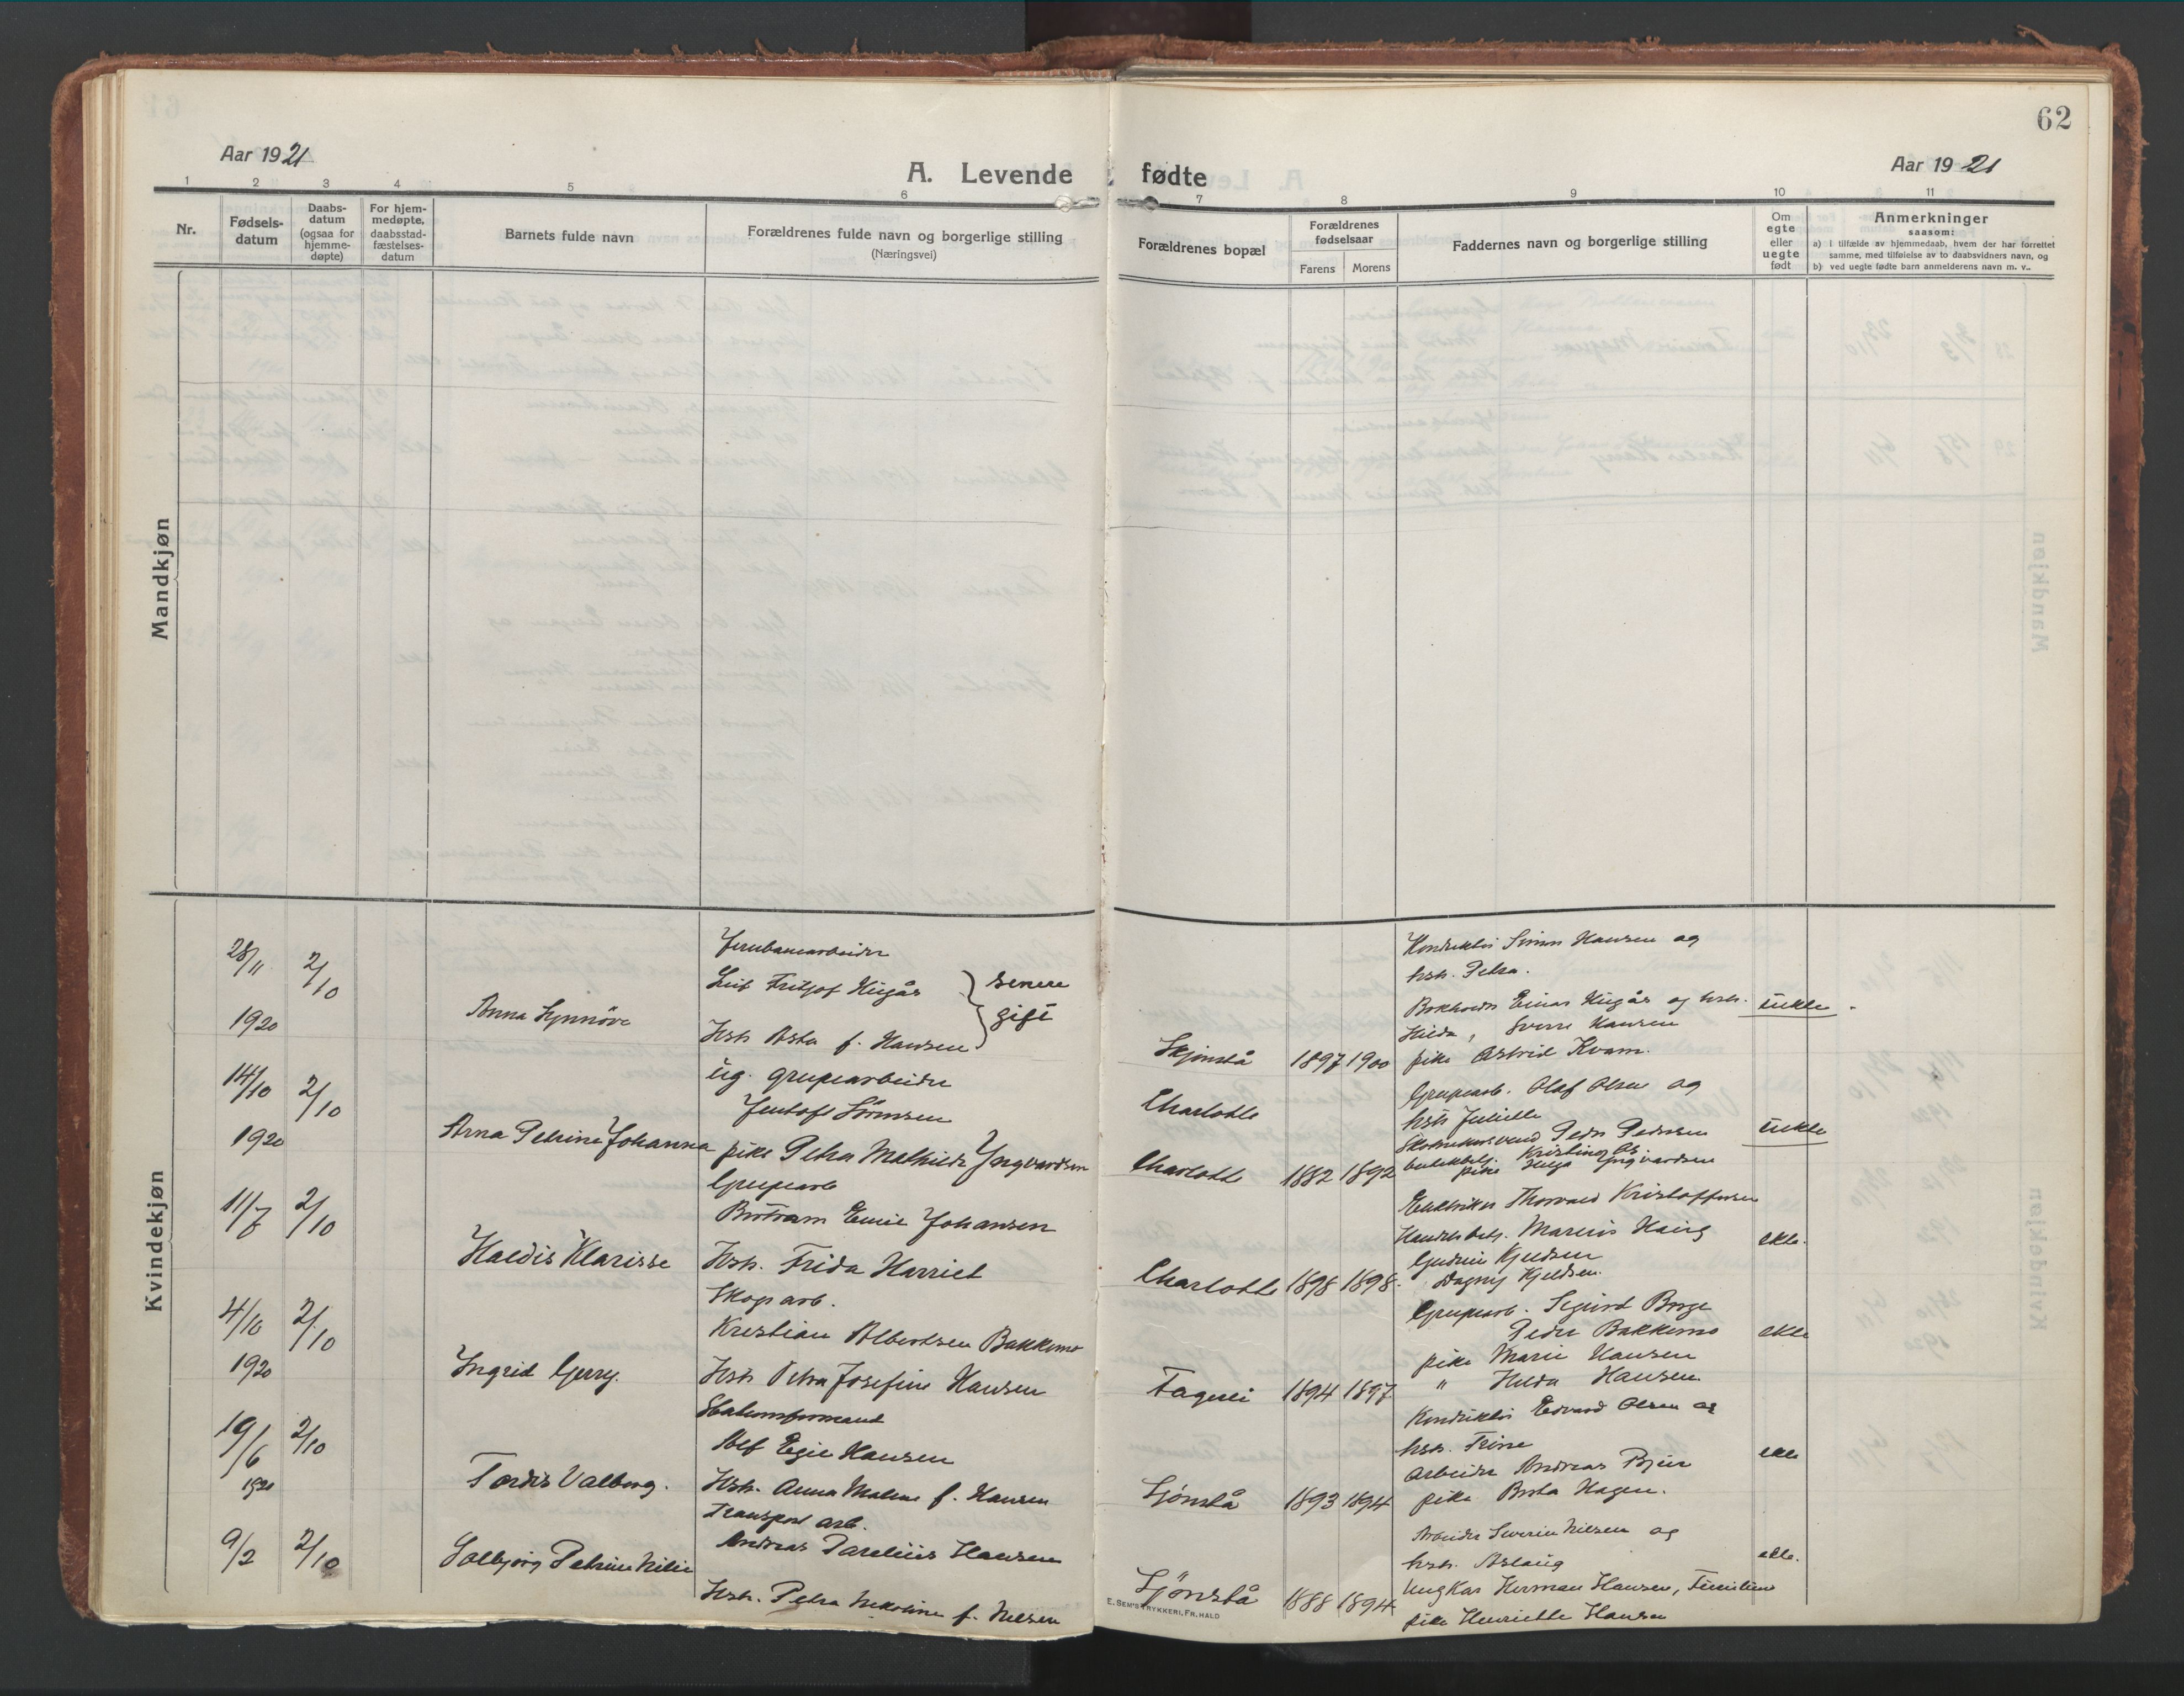 62
Aar 1921
A. Levende fødte
Aar 1921
1 2 3 4 5 6 7 8 9 10 11
Nr.
Fødsels-
datum
Daabs-
datum
(ogsaa for
hjemme-
døpte)
For hjem-
medøpte,
daabsstad-
fæstelses-
datum
Barnets fulde navn
Forældrenes fulde navn og borgerlige stilling
(Næringsvei)
Forældrenes bopæl
Forældrenes
fødselsaar
Farens Morens
Faddernes navn og borgerlige stilling
Om
egte
eller
uegte
født
Anmerkninger
saasom:
a) i tilfælde av hjemmedaab, hvem der har forrettet
samme, med tilføielse av to daabsvidners navn, og
b) ved uegte fødte barn anmelderens navn m. v..
Mandkjøn
Kvindekjøn
28/11 2/10
1920
Anna Synnöve
Jernbanearbeider
Leif Fritjof
Hstr Asta f. Hansen
senere
gift
Skjönstå 1897 1900
Konduktör Simon Hansen og
hstr. Petra.
Bokholder Einar og hstr.
Hilda, Sverre Hansen
pike Astrid Kvam.
uekte
14/10 2/10
1920
Arna Petrine Johanna
ug. grubearbeider
Jentoft Sörensen
pike Petra Mathilde Yngvardsen
Charlotte
Charlotte 1882 1892
Grubearb. Olaf Olsen og
hstr Juliette
Peder Pedersen
pike Helga Yngvardsen
uekte
11/7 2/10
Haldis Klarisse
Grubearb
Bertram Emil Johansen
Hstr. Frida Harriet
Charlotte 1898 1898.
Elektriker Thorvald Kristoffersen
Handelsbetj. Marius Haug
Gudrun Kjeldsen
Dagny Kjeldsen.
ekte.
4/10 2/10
1920
Ingrid Gerry.
Skogsarb.
Kristian Albertsen Bakkemo
Hstr Petra Josefine Hansen
Fagerli 1894 1897
Grubearb. Sigurd Borge
Peder Bakkemo
pike Marie Hansen
" Hilda Hansen
ekte
19/6 2/10
1920
Tordis Valborg.
Stationsformand
Alf Egil Hansen
Hstr. Anna Malene f. Hansen
Sjönstå 1893 1894
Konduktör Edvard Olsen og
hstr. Trine
Arbeider Andreas
pike Berta Hagen.
ekte
9/2 2/10
Solbjörg Petrine Nilie
Transport arb.
Andreas Parelius Hansen
Hstr. Petra Nekoline f. Nilsen
Sjönstå 1888 1894
Arbeider Severin Nilsen og
hstr. Aslaug
Ungkar Herman Hansen,
pike Henriette Hansen
ekte.
E. SEM'S TRYKKERI, FR.HALD